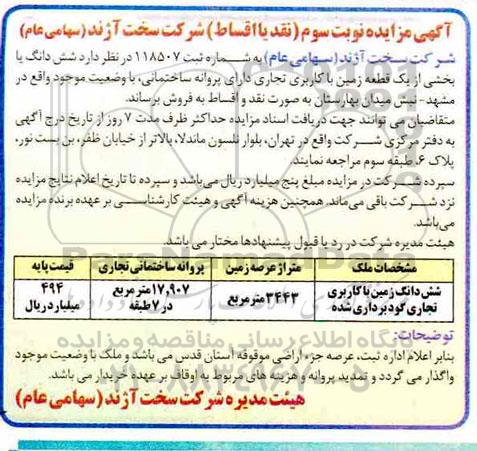 آگهی مزایده نوبت سوم (نقد یا اقساط) شرکت سخت آژند (سهامی عام)
شرکت سخت آژند (سهامی عام) به شماره ثبت ۱۱۸۵۰۷ در نظر دارد شش دانگ یا
بخشی از یک قطعه زمین با کاربری تجاری دارای پروانه ساختمانی، با وضعیت موجود واقع در
مشهد- نبش میدان بهارستان به صورت نقد و اقساط به فروش برساند.
متقاضیان می توانند جهت دریافت اسناد مزایده حداکثر ظرف مدت ۷ روز از تاریخ درج آگهی
به دفتر مرکزی شرکت واقع در تهران، بلوار نلسون ماندلا، بالاتر از خیابان ظفر، بن بست نور،
پلاک ۶، طبقه سوم مراجعه نمایند.
سپرده شرکت در مزایده مبلغ پنج میلیارد ریال می‌باشد و سپرده تا تاریخ اعلام نتایج مزایده
نزد شرکت باقی می‌ماند. همچنین هزینه آگهی و هیئت کارشناسی بر عهده برنده مزایده
می‌باشد.
هیئت مدیره شرکت در رد یا قبول پیشنهادها مختار می باشد
مشخصات ملک متراژ عرصه زمین پروانه ساختمانی تجاری قیمت پایه
شش دانگ زمین با کاربری ۳۴۴۳ مترمربع ۱۷٫۹۰۷ مترمربع ۴۹۴
تجاری گودبرداری شده در ۷ طبقه میلیارد ریال
توضیحات:
بنابر اعلام اداره ثبت، عرصه جزء اراضی موقوفه آستان قدس می باشد و ملک با وضعیت موجود
واگذار می گردد و تمدید پروانه و هزینه های مربوط به اوقاف بر عهده خریدار می باشد.
هیئت مدیره شرکت سخت آژند (سهامی عام)